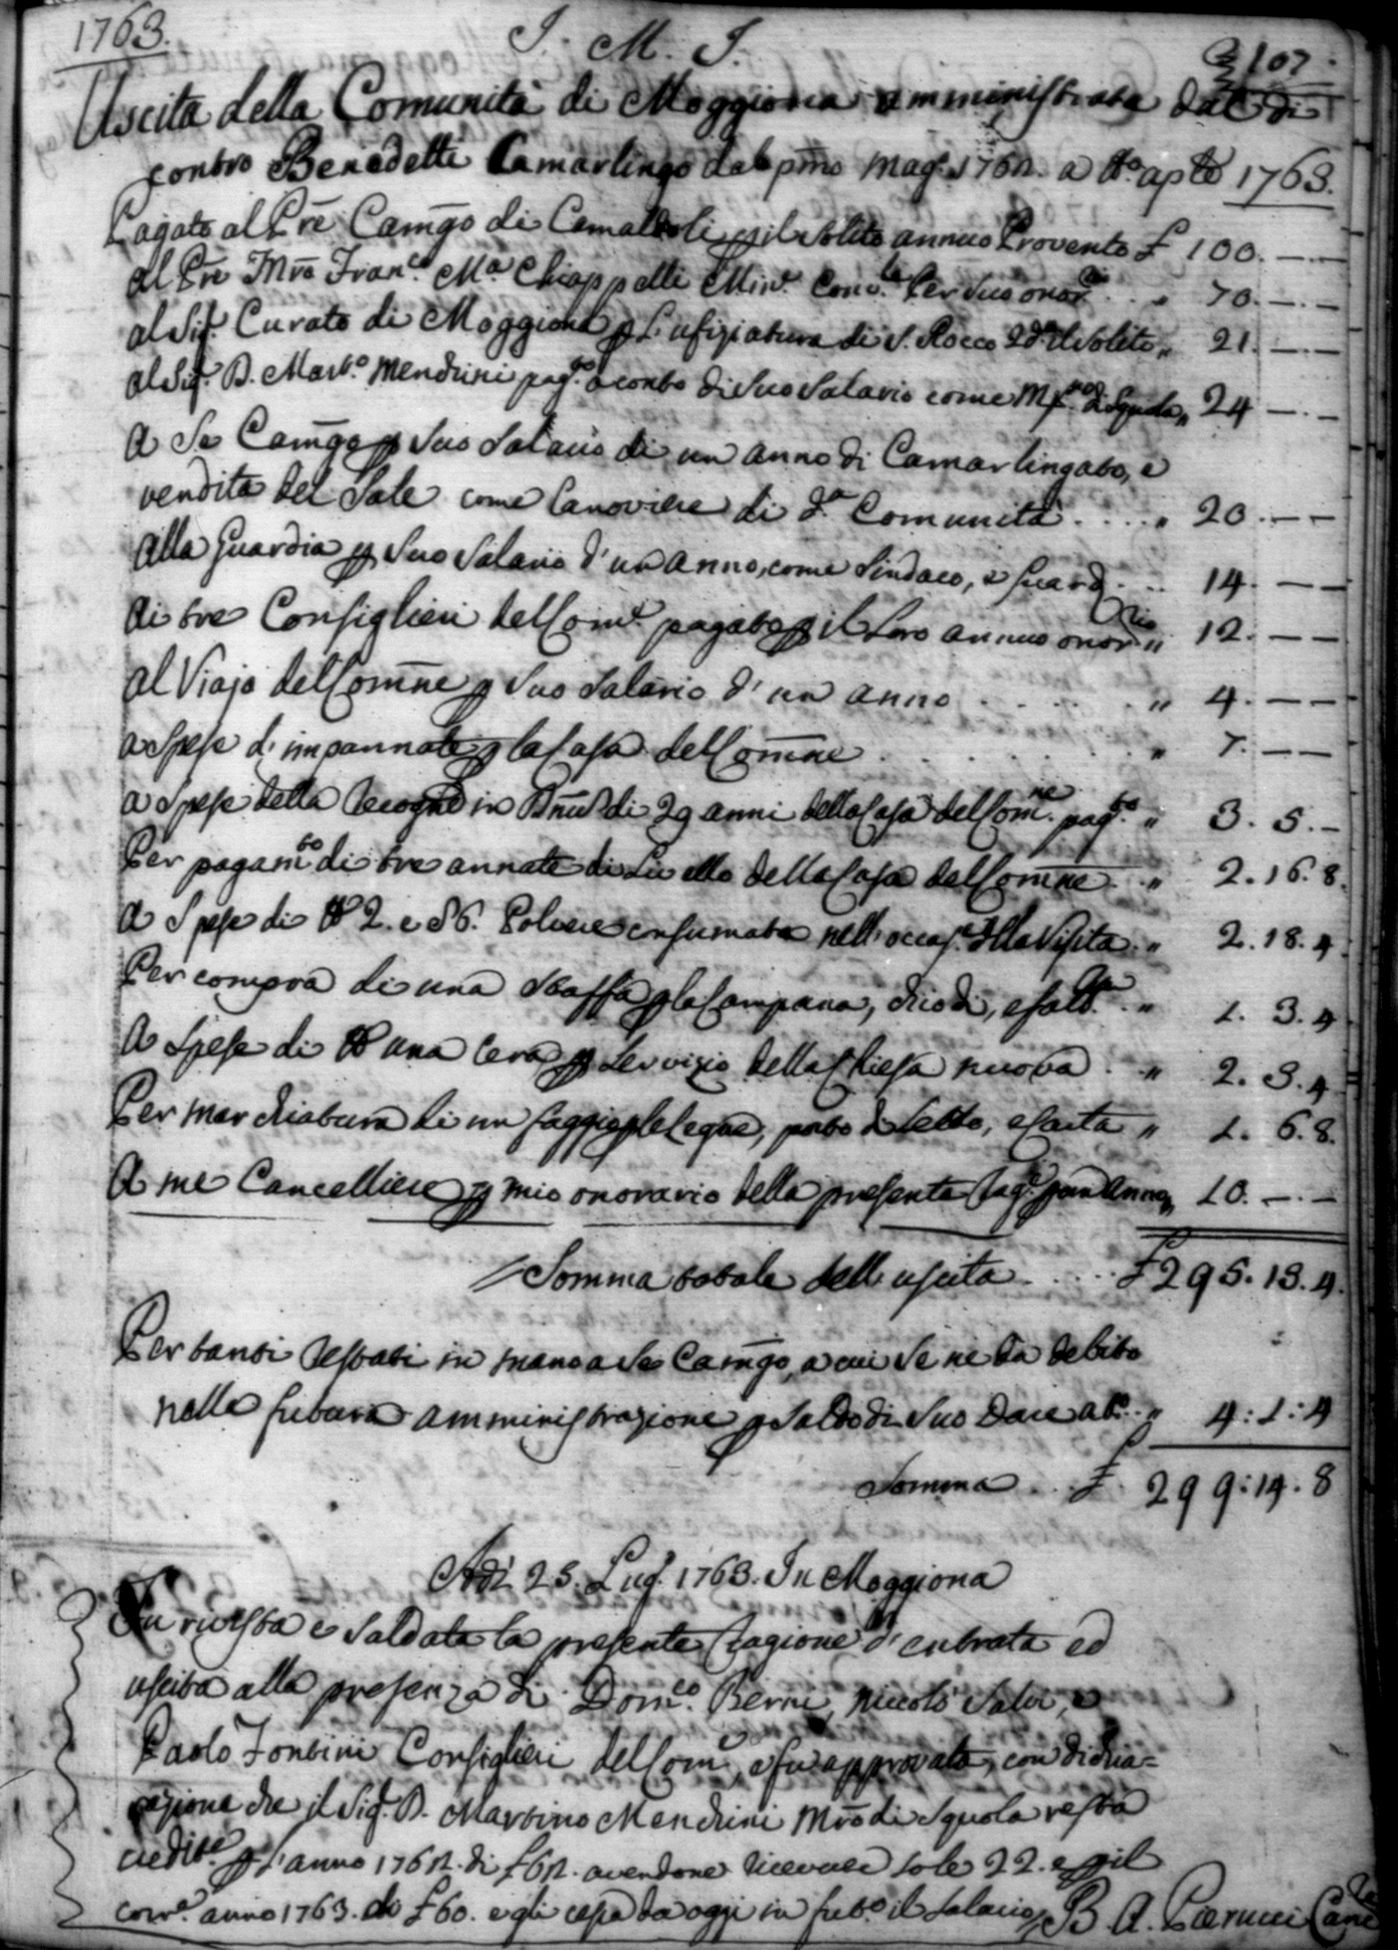 1763.
J. M. J.
107.
Uscita della Comunità di Moggiona amministrata dal di
contro Benedetti Camarlingo dal pmo Mag. 1762. a tto aple 1763.
Pagate al Pre Camgo di Camaldoli p il solito annuo Provento £ 100.—.—
al Pre Mro Franco Ma Chiappelli Minr Convle Per suo onorrio . . " 70.—.—
al Sigr Curato di Moggiona p l'ufiziatura di S. Rocco 2do il solito " 21.—.—
al Sigr D. Marto Mendrini pagto a conto di suo salario come Mro di Squola " 24.—.—
A Se Camgo p suo salario di un anno di Camarlingato, e
vendita del Sale come Canoviere di da Comunità . . . . " 20.—.—
alla Guardia p suo salario d'un anno, come Sindaco, e Guarda . . 14.—.—
di tre Consiglieri del Come pagato p il loro annuo onorrio " 12.—.—
al Viajo del Comne p suo salario d'un anno . . . . . " 4.—.—
a spese d'impannate p la Casa del Comne . . . . . . " 7.—.—
a spese della in di 29 anni della Casa del Comne pagto " 3. 5.—
Per pagamto di tre annate di Livello della Casa del Comne . " 2.16.8.
a Spese di lb 2. e 6. Polvere consumata nell'occase della Visita . " 2.18.4.
Per compra di una staffa p la Campana, chiodi, e . " 1. 3.4
A Spese di lb una Cera p servizio della Chiesa nuova . " 2. 3.4
Per marchiatura di un faggio p le legne, porto di letto, e carta " 1. 6.8.
A me Cancelliere p mio onorario della presente Ragne p un Anno " 10.—.—
Somma totale dell'uscita . . . . . £ 295.13.4.
Per tanti restati in mano a Se Camgo, a cui se ne dà debito
nella futura amministrazione p saldo di suo Dare a " 4:1:4
Somma . . . £. 299:14.8
Adì 25. Lugo 1763. In Moggiona
Fu rivista e saldata la presente Ragione d'entrata ed
uscita alla presenza di Domco Berni, Niccolò Salvi, e
Paolo Fontini Consiglieri del Come, e fu approvata, con dichia=
razione che il Sigr D. Martino Mendrini Mro di Squola resta
credite p l'anno 1762. di £62. avendone ricevute sole 22. e p il
corre anno 1763. di £60. e gli cessa da oggi in futo il salario
B. A. Pierucci Cance